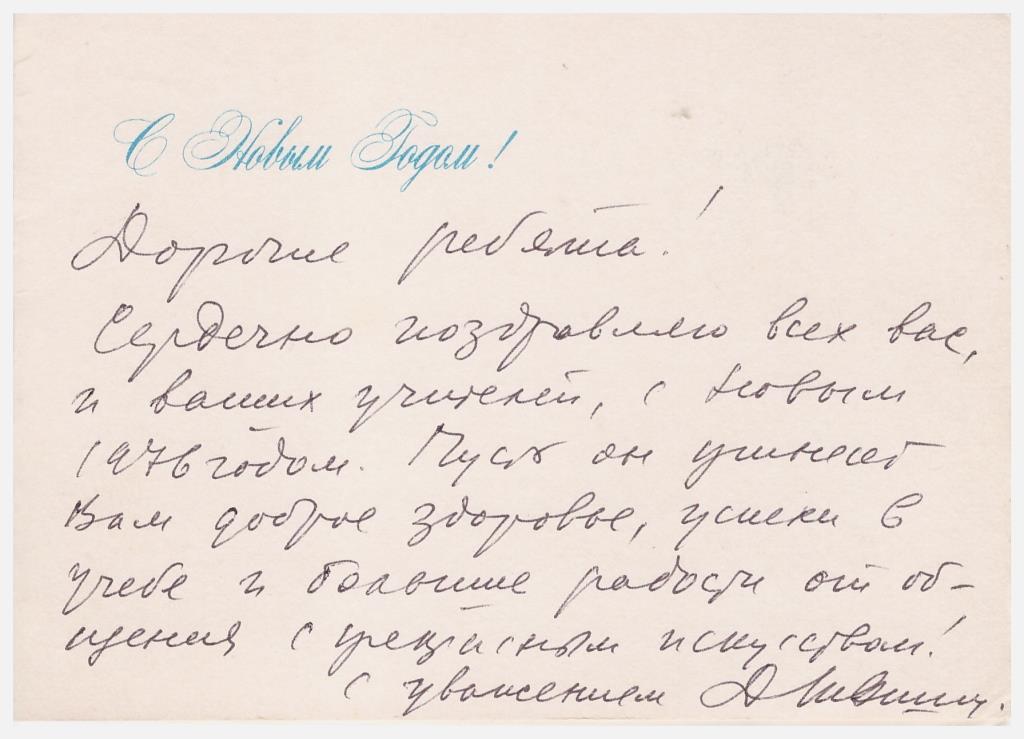 С Новым Годом!
Дорогие ребята!
Сердечно поздравляю всех вас,
и ваших учителей, с Новым
1976 годом. Пусть он принесет
Вам доброе здоровье, успехи в
учебе и большие радости от об-
щения с прекрасным искусством!
С уважением